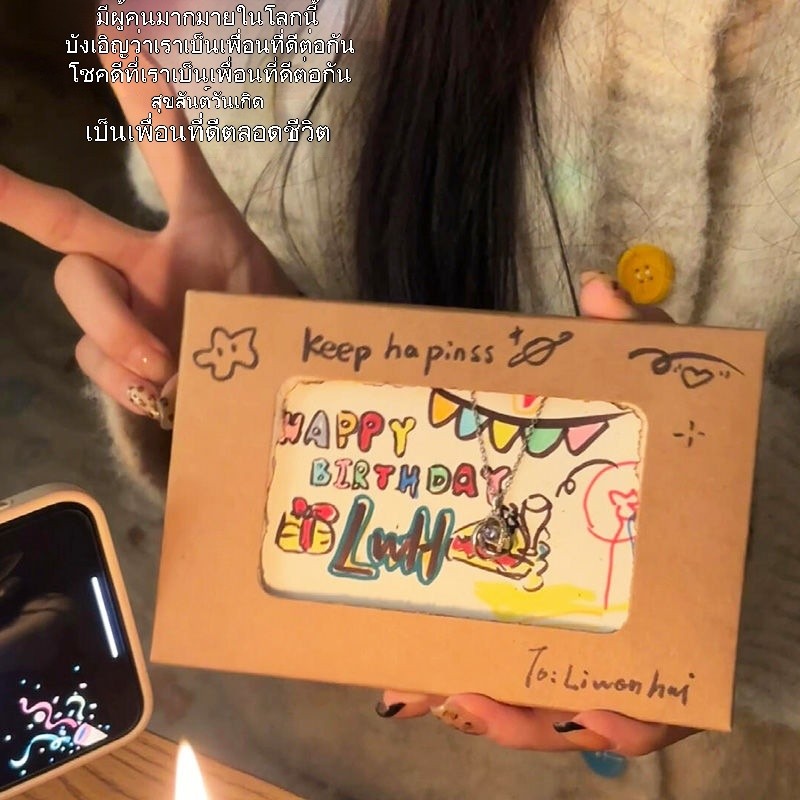 มีผู้คนมากมายในโลกนี้
บังเอิญว่าเราเป็นเพื่อนที่ดีต่อกัน
โชคดีที่เราเป็นเพื่อนที่ดีต่อกัน
สุขสันต์วันเกิด
เป็นเพื่อนที่ดีตลอดชีวิต
Keep hapinss
HAPPY
BIRTHDAY
LwH
To: Liwen hai